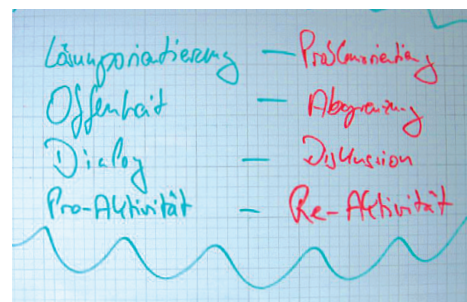 Lösungsorientierung – Problemorientierung
Offenheit – Abgrenzung
Dialog – Diskussion
Pro-Aktivität – Re-Aktivität